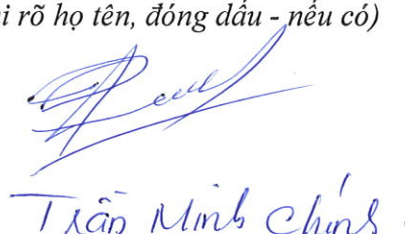 i rõ họ tên, đóng dấu - nếu có)
Trần Minh Chính